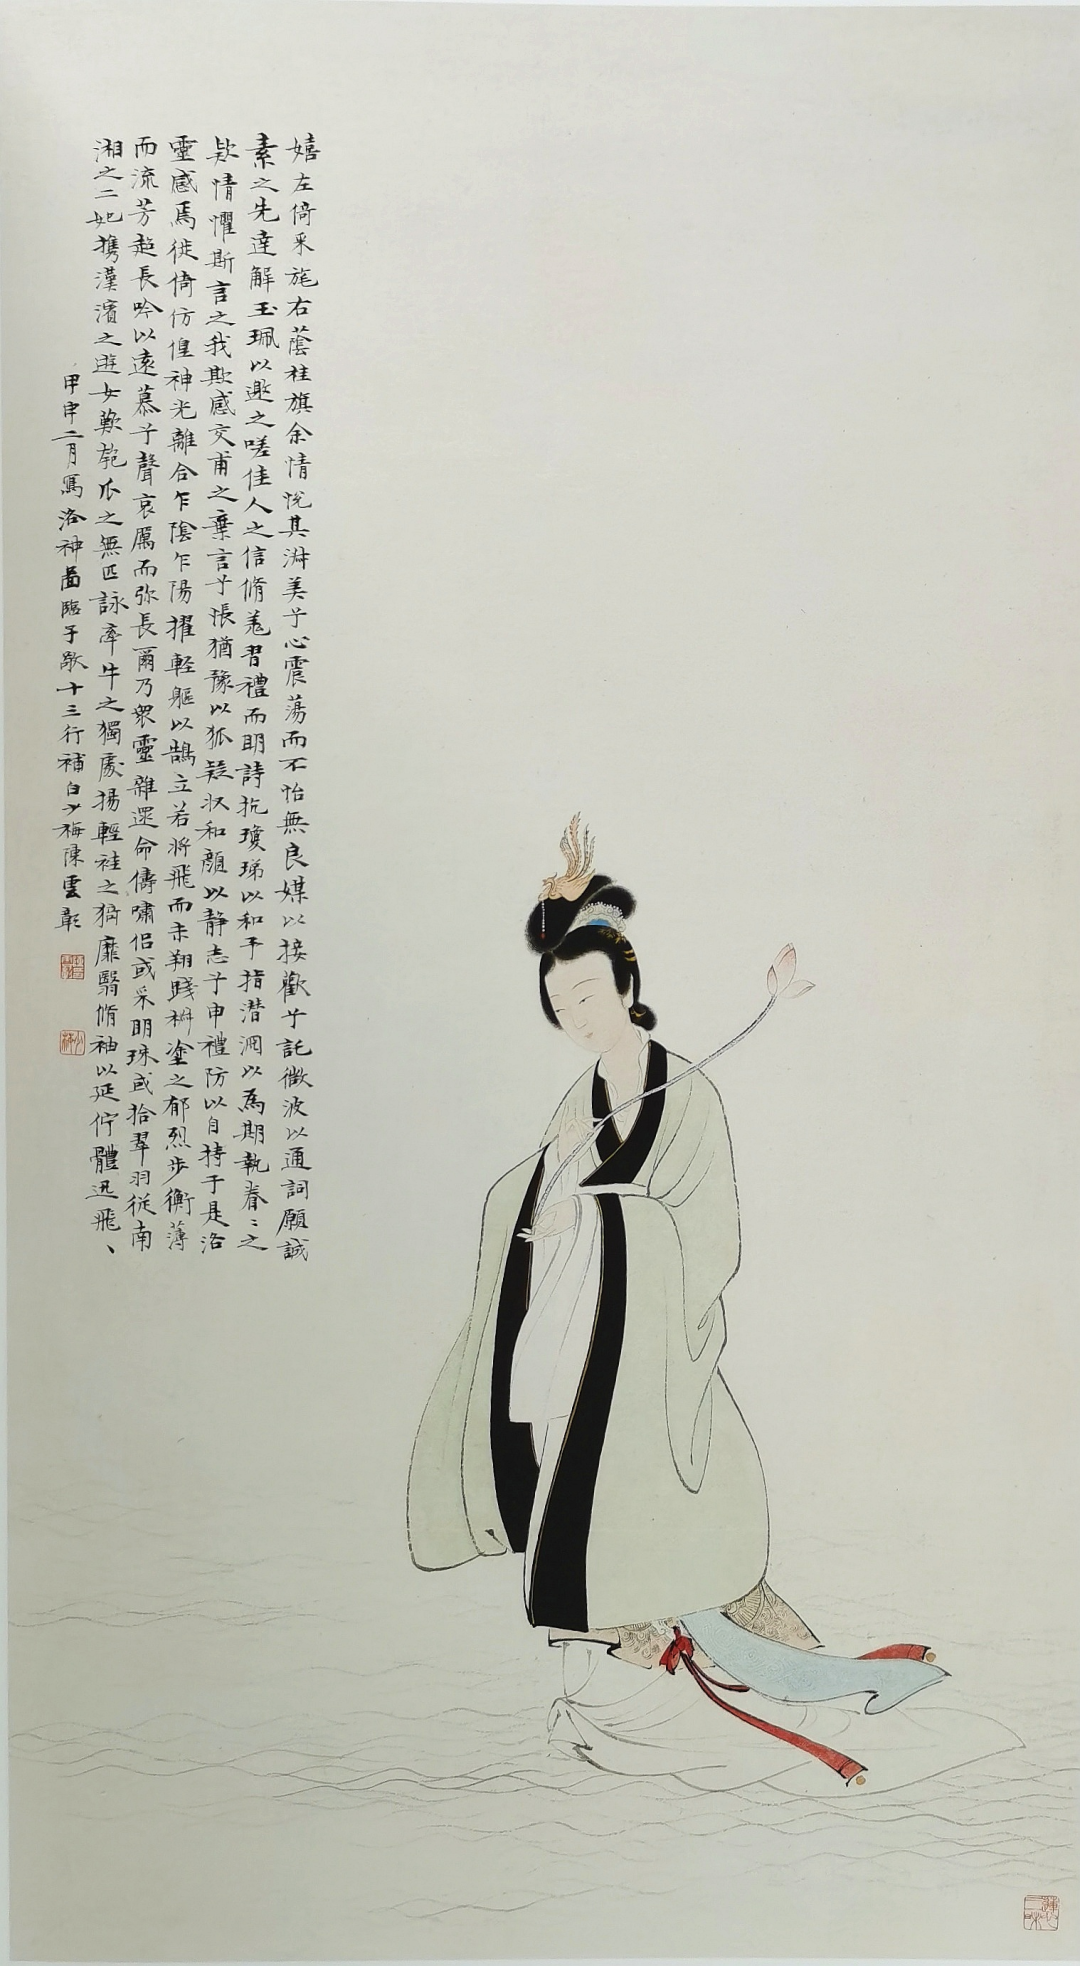 嬉左倚采旄右蔭桂旗余情悅其淑美兮心震蕩而不怡無良媒以接歡兮託微波以通詞願誠
素之先達解玉珮以邀之嗟佳人之信脩羗習禮而明詩抗瓊珶以和予指潛淵以為期執眷〻之
欵情懼斯言之我欺感交甫之棄言兮悵猶豫以狐疑収和顏以靜志兮申禮防以自持于是洛
靈感焉徙倚仿偟神光離合乍陰乍陽擢輕軀以鵠立若將飛而未翔踐椒塗之郁烈步衡薄
而流芳超長吟以遠慕兮聲哀厲而弥長爾乃衆靈雜遝命儔嘯侶或采明珠或拾翠羽從南
湘之二妃攜漢濱之遊女歎匏瓜之無匹詠牽牛之獨處揚輕袿之猗靡翳脩袖以延佇體迅飛、
甲申二月寫洛神圖臨子敬十三行補白少梅陳雲彰
少梅